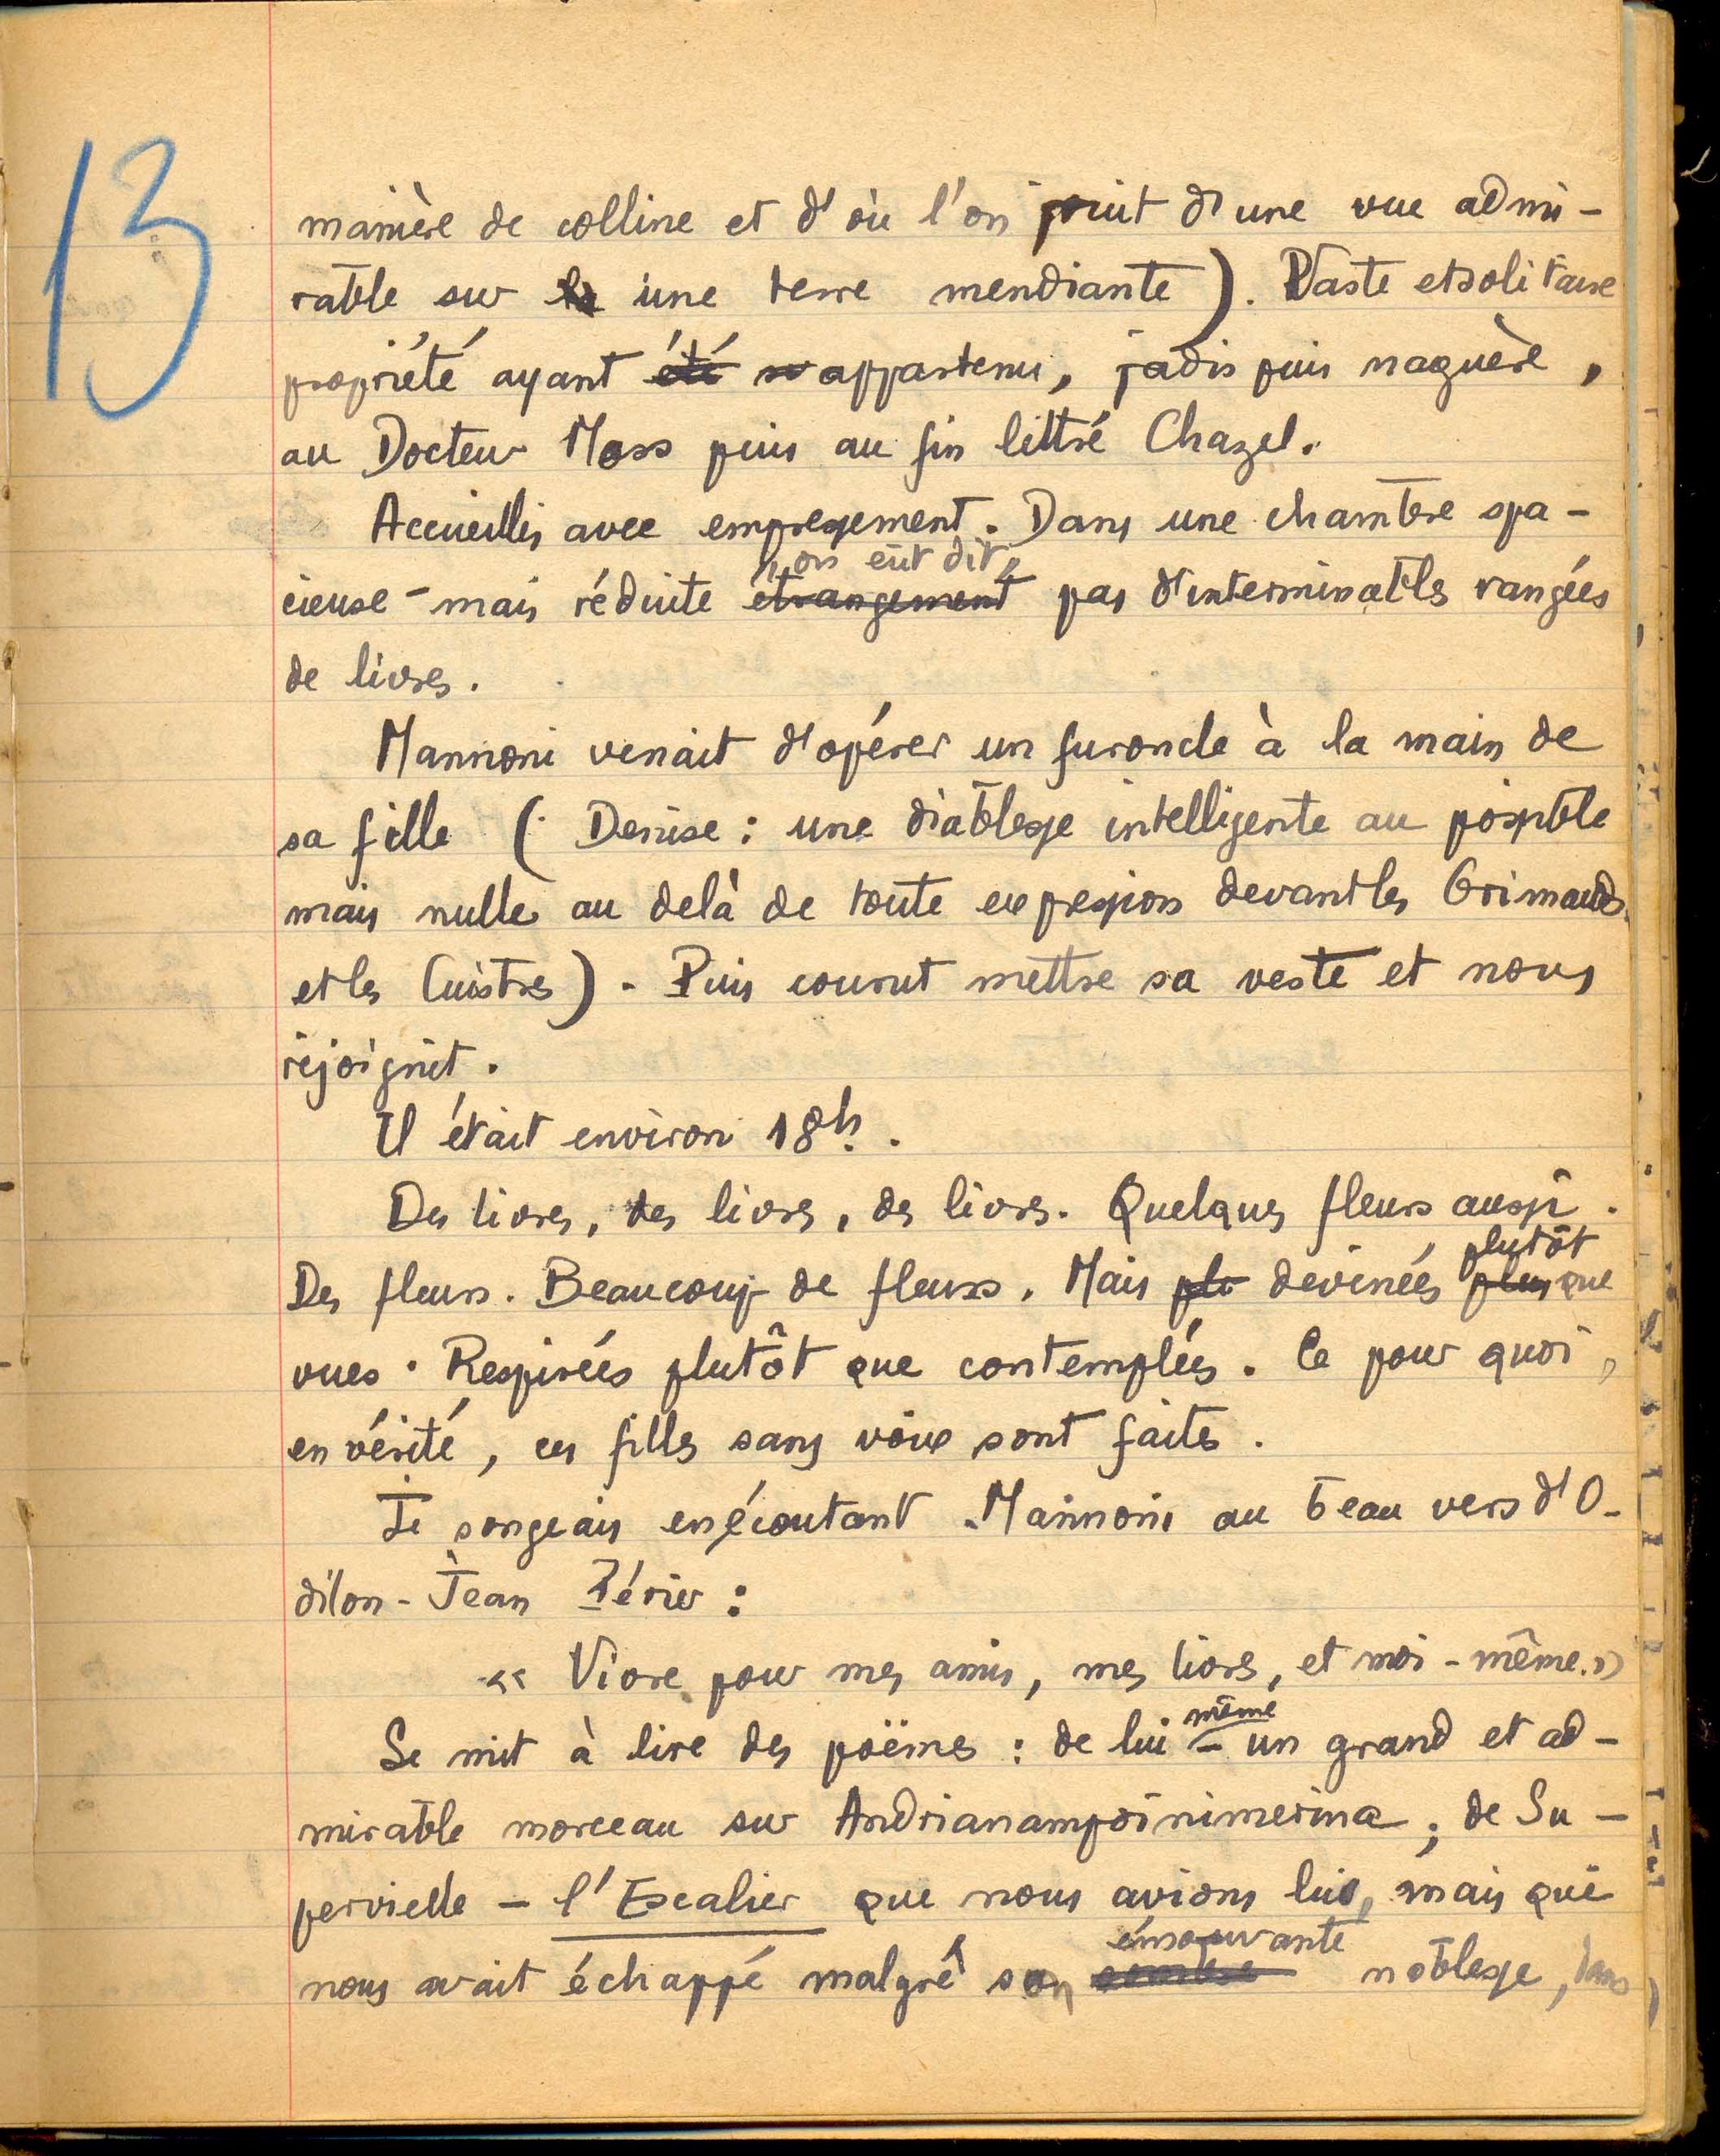 13
manière de colline et d'où l'on jouit d'une vue admi-
rable sur la une terre mendiante). Vaste et solitaire
propriété ayant été appartenu, jadis puis naguère,
au Docteur Moss puis au fin lettré Chazel.
Accueillis avec empressement. Dans une chambre spa-
cieuse - mais réduite étrangement , on eût dit, par d'interminables rangées
de livres.
Mannoni venait d'opérer un furoncle à la main de
sa fille (Denise : une diablesse intelligente au possible
mais nulle au delà de toute expression devant les Grimauds
et les Cuistres). Puis courut mettre sa veste et nous
rejoignit.
Il était environ 18h.
Des livres, des livres, des livres. Quelques fleurs aussi.
Des fleurs. Beaucoup de fleurs. Mais plu devinées plus plutôt que
vues. Respirées plutôt que contemplées. Ce pour quoi,
en vérité, ces filles sans voix sont faites.
Je songeais en écoutant Mannoni au beau vers d'O-
dilon-Jean Périer :
« Vivre pour mes amis, mes livres, et moi-même. »
Se mit à lire des poëmes : de lui même - un grand et ad-
mirable morceau sur Andrianampoinimerina ; de Su-
pervielle - l'Escalier que nous avions lu, mais qui
nous avait échappé malgré son émouvante noblesse, dans